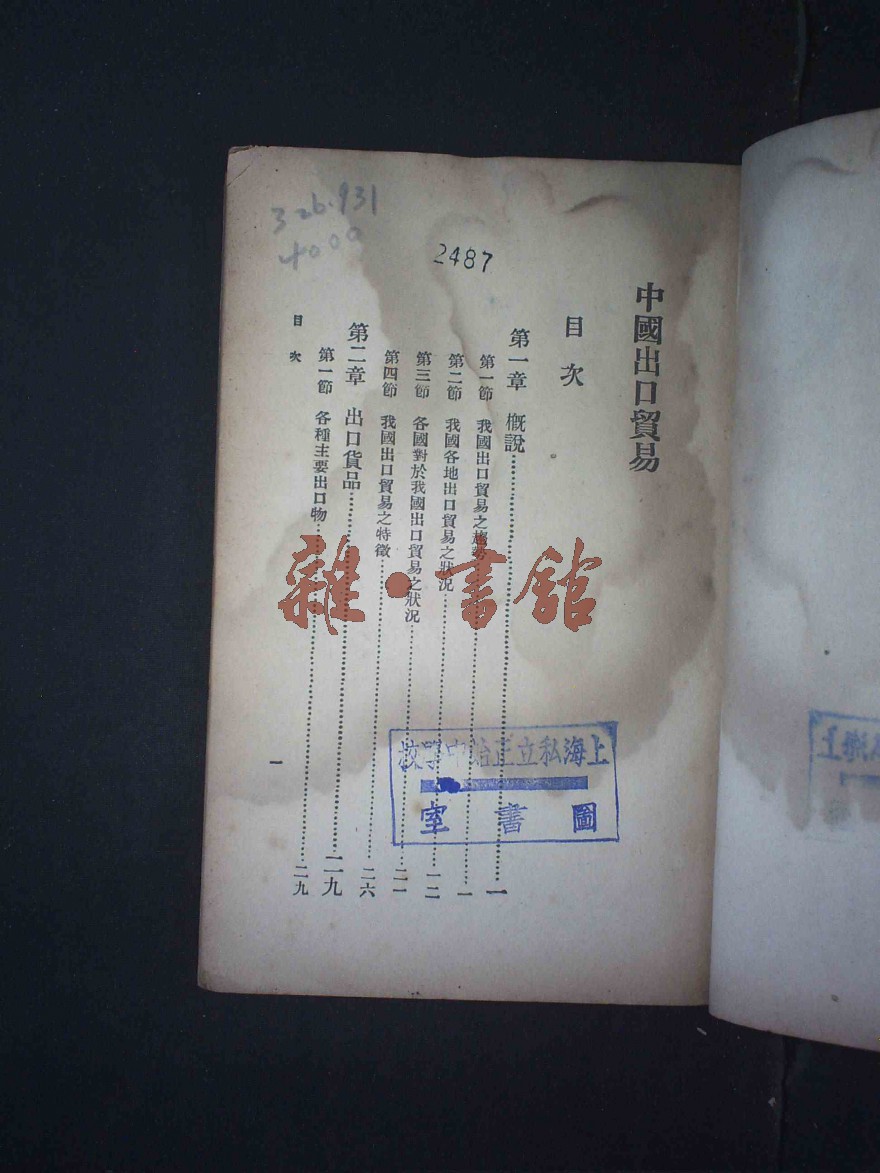 326.931
4000
2487
中國出口貿易
目次
第一章 概說……一
第一節 我國出口貿易之趨勢……一
第二節 我國各地出口貿易之狀況……一二
第三節 各國對於我國出口貿易之狀況……二一
第四節 我國出口貿易之特徵……二六
第二章 出口貨品……二九
第一節 各種主要出口物……二九
目次
一
雜·書館
上海私立正始中學校
圖書室